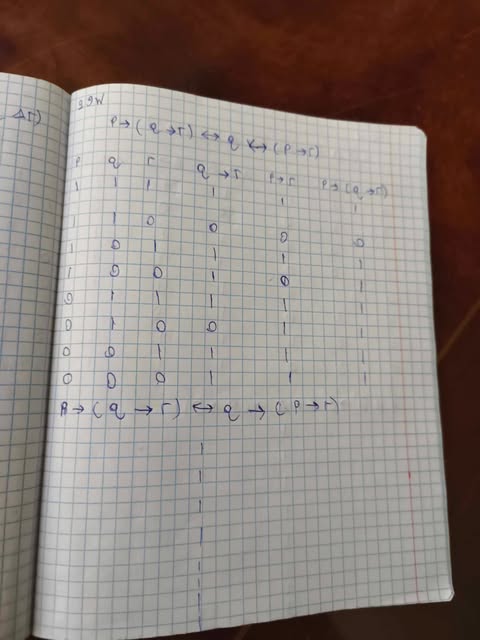 Δr)
N65
p→(q→r)↔q→(p→r)
p q r q→r p→r p→(q→r)
1 1 1 1 1 1
1 1 0 0 0 0
1 0 1 1 1 1
1 0 0 1 0 1
0 1 1 1 1 1
0 1 0 0 1 1
0 0 1 1 1 1
0 0 0 1 1 1
p→(q→r)↔q→(p→r)
1
1
1
1
1
1
1
1